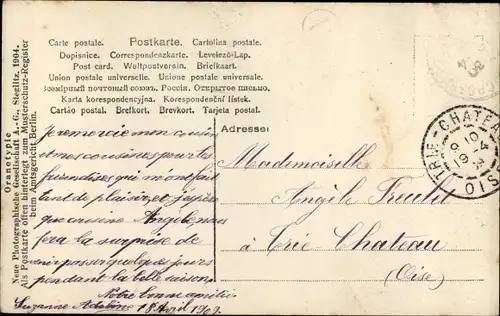 Carte postale. Postkarte. Cartolina postale.
Dopisnice. Correspondenzkarte. Levelező-Lap.
Post card. Weltpostverein. Briefkaart.
Union postale universelle. Unione postale universale.
Всемірный почтовый союзъ. Россія. Открытое письмо.
Karta korespondencyjna. Korespondenční lístek.
Cartão postal. Brefkort. Brevkort. Tarjeta postal.
Oranotypie
Neue Photographische Gesellschaft A.-G., Steglitz. 1904.
Als Postkarte offen hinterlegt zum Musterschutz-Register
beim Amtsgericht Berlin.
Adresse:
Je remercie mon cousin
et mes cousines pour les
friandises qui m'ont fait
tant de plaisir, et j'espère
que cousine Angèle, nous
fera la surprise de
venir passer quelques jours
pendant la belle saison.
Notre bonne amitié
Suzanne 18 Avril 1909.
Mademoiselle
Angèle
à Trie Chateau
(Oise)
TRIE-CHATEAU
OISE